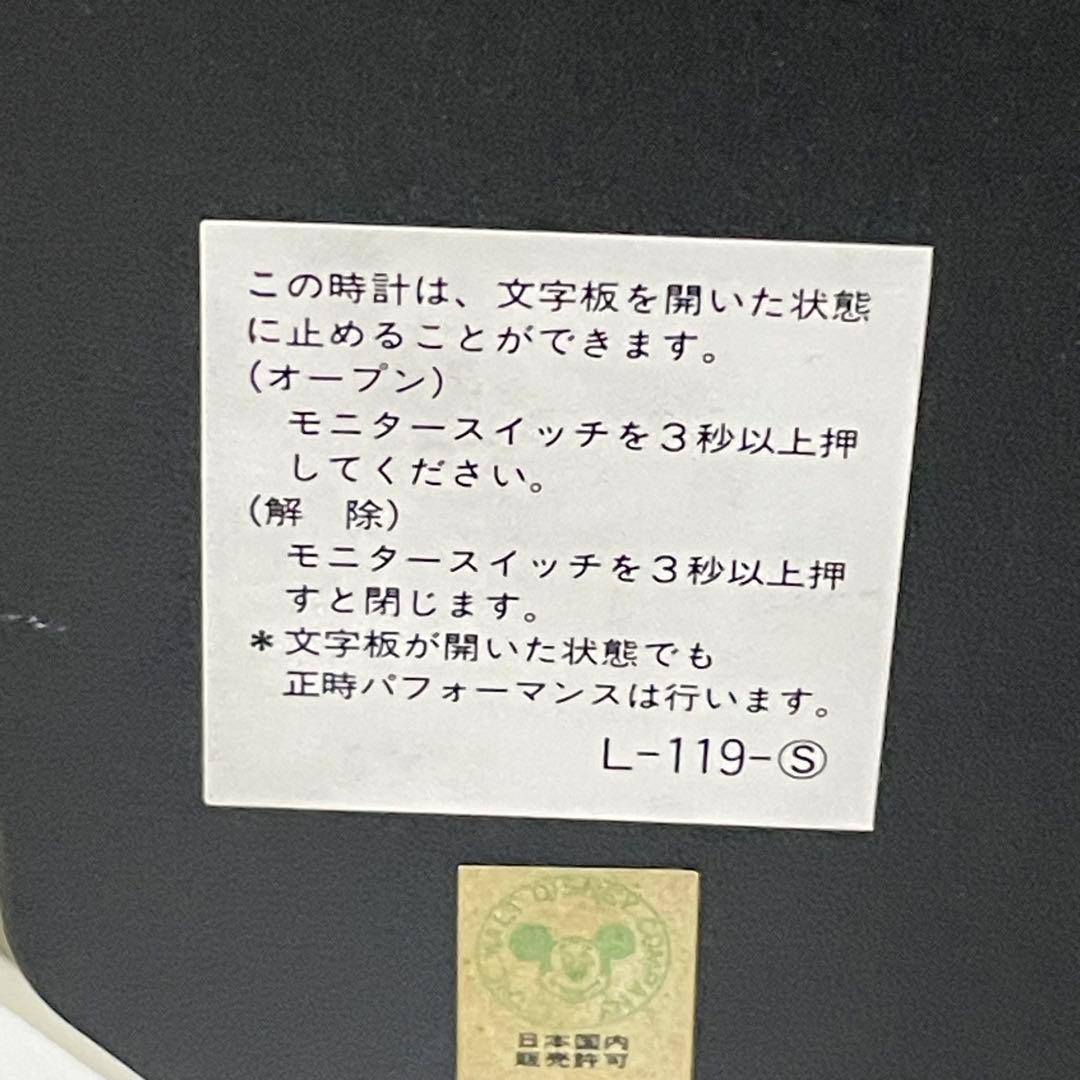 この時計は、文字板を開いた状態
に止めることができます。
(オープン)
モニタースイッチを3秒以上押
してください。
(解　除)
モニタースイッチを3秒以上押
すと閉じます。
*文字板が開いた状態でも
正時パフォーマンスは行います。
L-119-Ⓢ
THE WALT DISNEY COMPANY
日本国内
販売許可